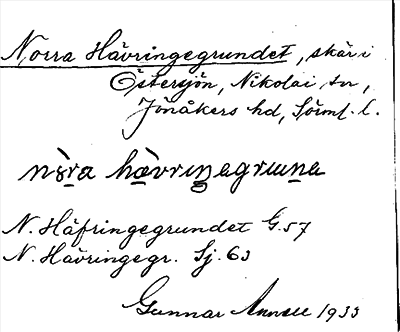 Norra Hävringegrundet, skär i
Östersjön, Nikolai sn,
Jönåkers hd, Sörml. l.
nòra hævrıŋegruna
N. Häfringegrundet G.57
N. Hävringegr. Sj. 63
Gunnar 1933